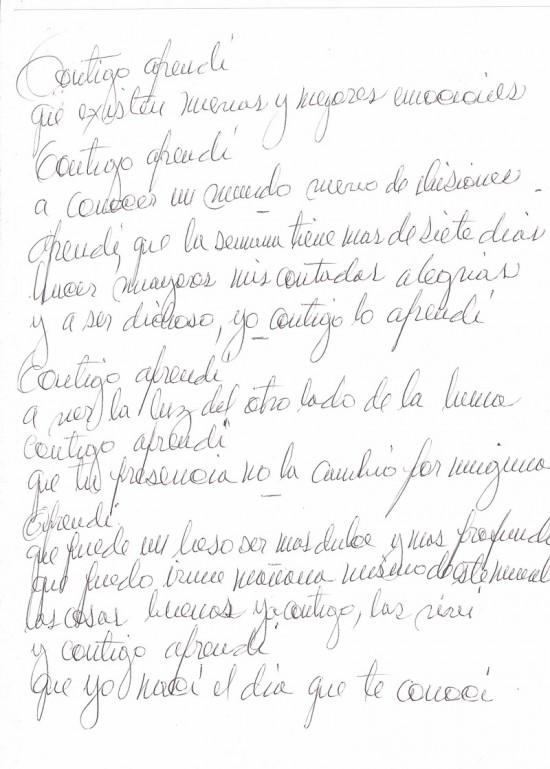 Contigo aprendí
que existen nuevas y mejores emociones
Contigo aprendí
a conocer un mundo nuevo de ilusiones
Aprendí, que la semana tiene mas de siete dias
hacer mayores mis contadas alegrias
y a ser dichoso, yo contigo lo aprendí
Contigo aprendí
a ver la luz del otro lado de la luna
contigo aprendí
que tu presencia no la cambio por ninguna
Aprendí
que puede un beso ser mas dulce y mas profundo
que puedo irme mañana mismo de este mundo
las cosas buenas ya contigo, las viví
y contigo aprendí
que yo nací el dia que te conocí